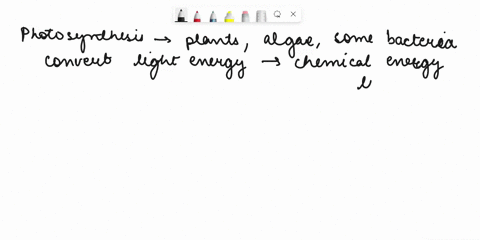 Photosynthesis → plants, algae, some bacteria
convert light energy → chemical energy